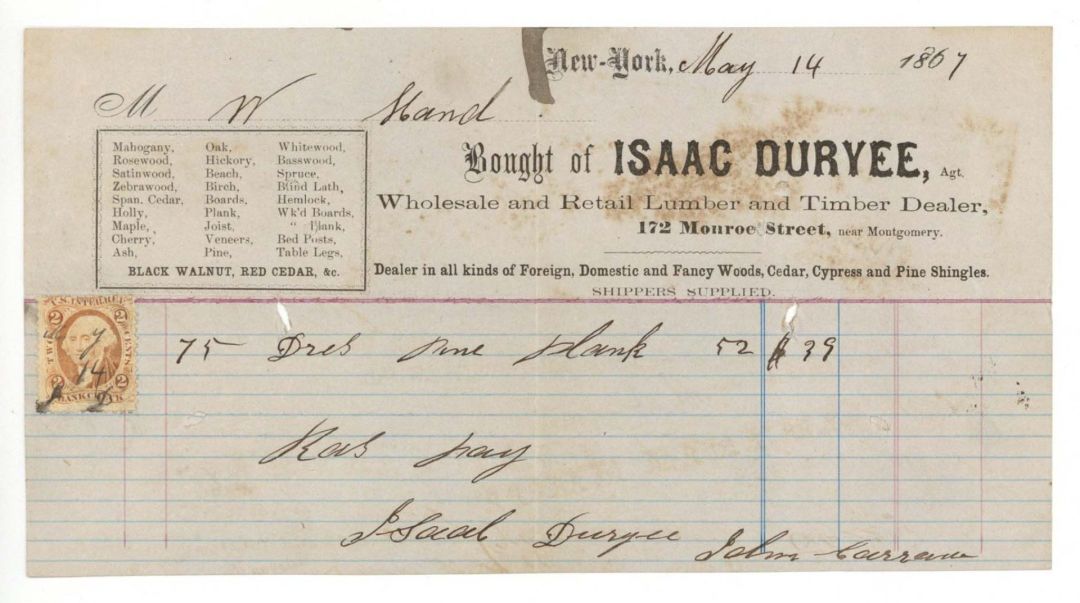 New-York, May 14 1867
M W Hand
Mahogany, Oak, Whitewood,
Rosewood, Hickory, Basswood,
Satinwood, Beach, Spruce,
Zebrawood, Birch, Blind Lath,
Span. Cedar, Boards, Hemlock,
Holly, Plank, Wk'd Boards,
Maple, Joist, " Plank,
Cherry, Veneers, Bed Posts,
Ash, Pine, Table Legs,
BLACK WALNUT, RED CEDAR, &c.
Bought of ISAAC DURYEE, Agt.
Wholesale and Retail Lumber and Timber Dealer,
172 Monroe Street, near Montgomery.
Dealer in all kinds of Foreign, Domestic and Fancy Woods, Cedar, Cypress and Pine Shingles.
SHIPPERS SUPPLIED.
U.S. INTER. REV.
2 2
TWO CENTS
14
2 2
BANK CHECK
75 Dres pine plank 52 $ 39
Isaac Duryee
John